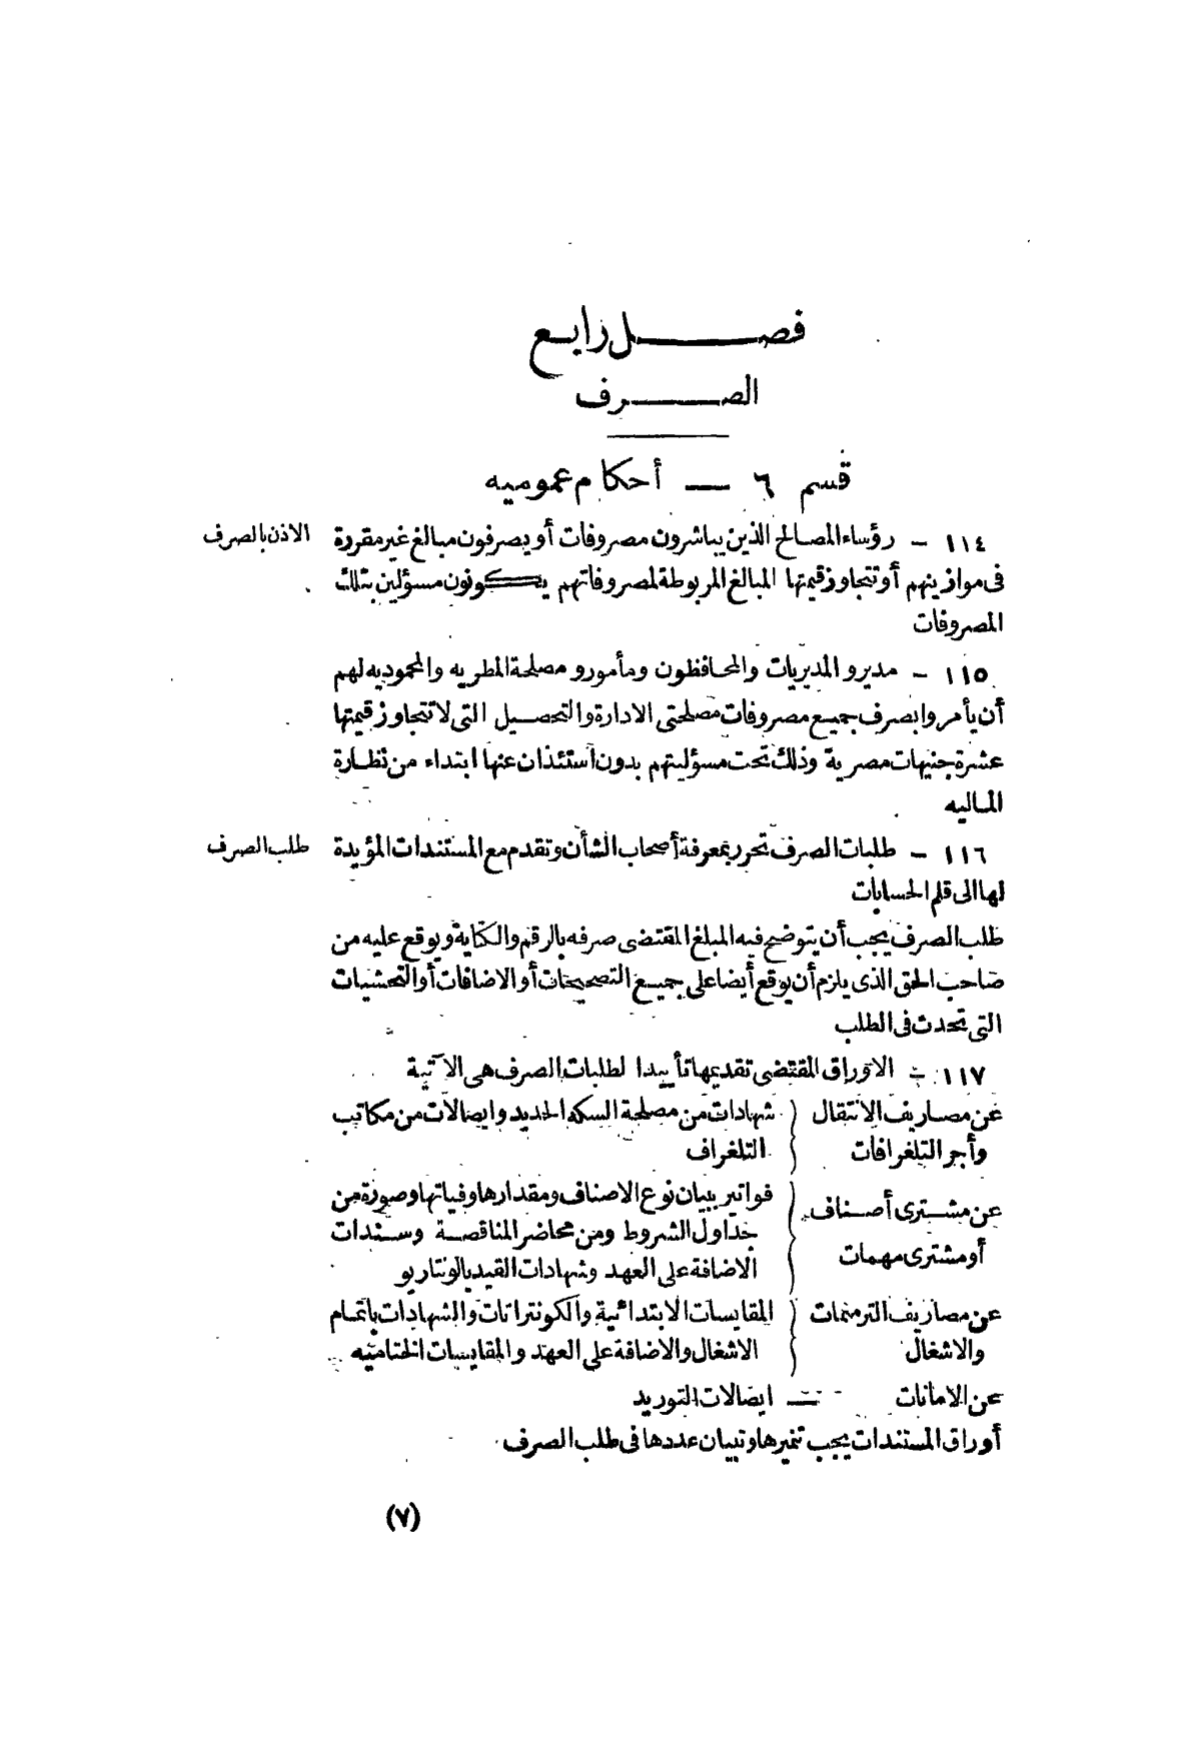 فصل رابع
الصرف
قسم ٦ — أحكام عموميه
١١٤ - رؤساء المصالح الذين يباشرون مصروفات أو يصرفون مبالغ غير مقررة
الاذن بالصرف
فى موازينهم أو تتجاوز قيمتها المبالغ المربوطة لمصروفاتهم يكونون مسؤلين بتلك
المصروفات
١١٥ - مديرو المديريات والمحافظون ومأمورو مصلحة المطريه والمحموديه لهم
أن يأمروا بصرف جميع مصروفات مصلحتى الادارة والتحصيل التى لا تتجاوز قيمتها
عشرة جنيهات مصرية وذلك تحت مسؤليتهم بدون استئذان عنها ابتداء من نظارة
الماليه
١١٦ - طلبات الصرف تحرر بمعرفة أصحاب الشأن وتقدم مع المستندات المؤيدة
طلب الصرف
لها الى قلم الحسابات
طلب الصرف يجب أن يتوضح فيه المبلغ المقتضى صرفه بالرقم والكتابة ويوقع عليه من
صاحب الحق الذى يلزم أن يوقع أيضا على جميع التصحيحات أو الاضافات أو التحشيات
التى تحدث فى الطلب
١١٧ - الاوراق المقتضى تقديمها تأييدا لطلبات الصرف هى الآتية
عن مصاريف الانتقال ( شهادات من مصلحة السكه الحديد وايصالات من مكاتب
وأجر التلغرافات ( التلغراف
عن مشترى أصناف ( فواتير ببيان نوع الاصناف ومقدارها وفياتها وصورة من
جداول الشروط ومن محاضر المناقصة وسندات
أو مشترى مهمات
الاضافة على العهد وشهادات القيد بالونتاريو
عن مصاريف الترميمات ( المقايسات الابتدائية والكونتراتات والشهادات باتمام
والاشغال ( الاشغال والاضافة على العهد والمقايسات الختاميه
عن الامانات — ايصالات التوريد
أوراق المستندات يجب تنميرها وتبيان عددها فى طلب الصرف
(٧)